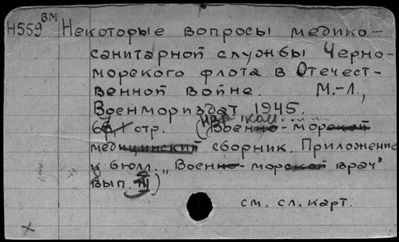 Н559 ВМ Некоторые вопросы медико-
санитарной службы Черно-
морского флота в Отечест-
венной войне. М.-Л.,
Военмориздат, 1945.
стр. (Военно-морской
медицинский сборник. Приложение
к бюлл. „Военно-морской врач"
вып.
см. сл. карт.
х